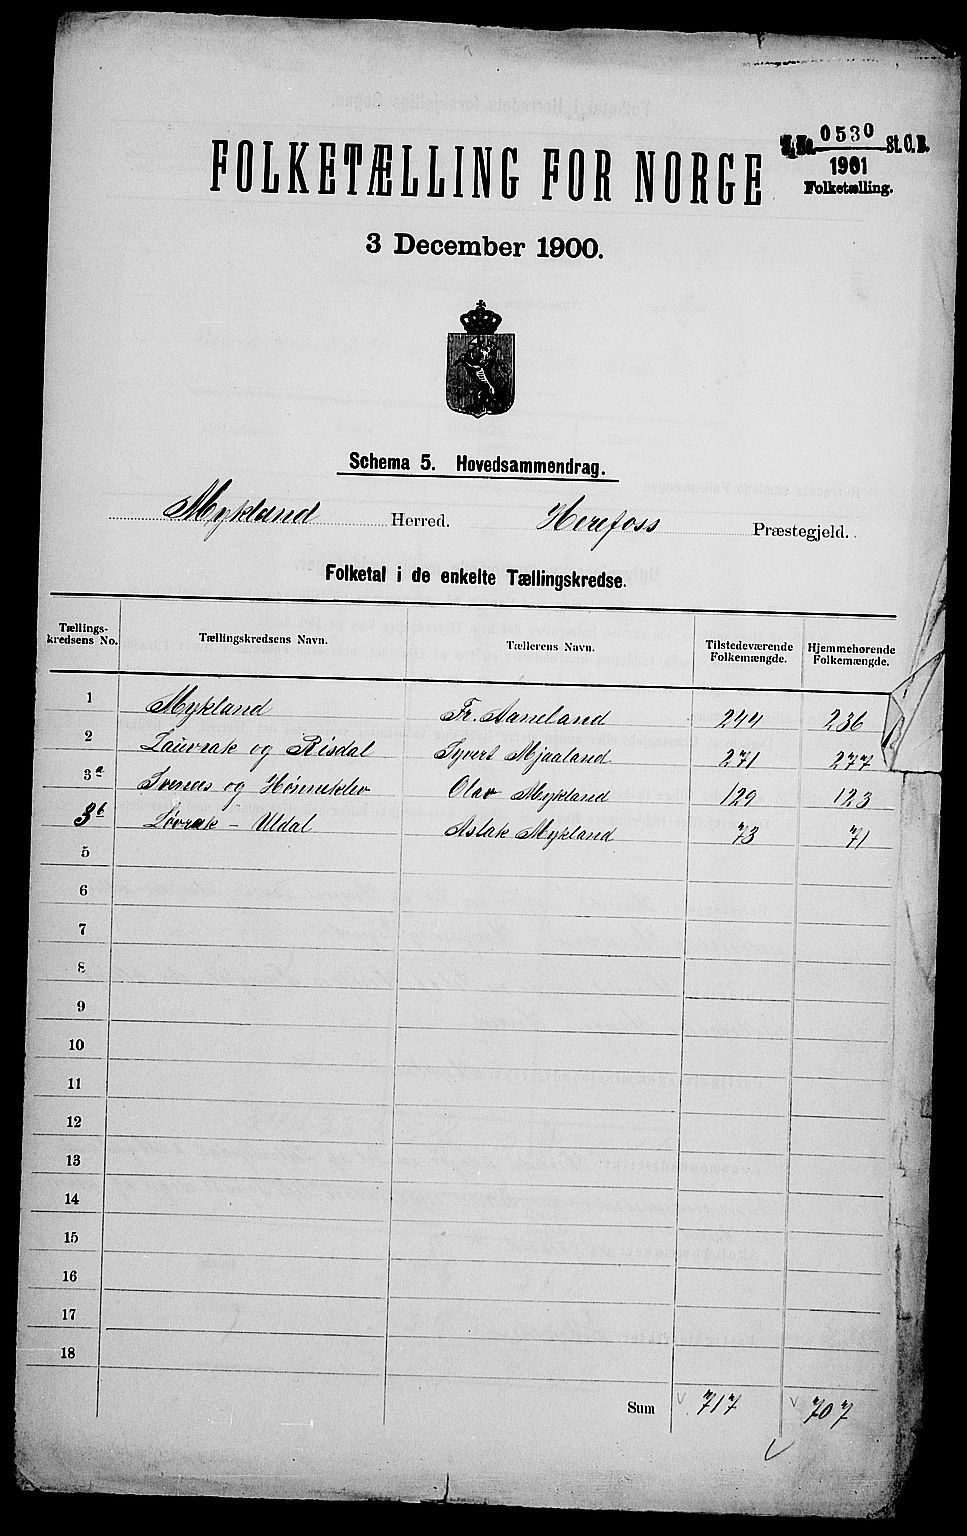 J. No. 0530 St. C. B.
1901
Folketælling.
FOLKETÆLLING FOR NORGE
3 December 1900.
Schema 5. Hovedsammendrag.
Mykland Herred. Herefoss Præstegjeld.
Folketal i de enkelte Tællingskredse.
Tællings-kredsens No. Tællingskredsens Navn. Tællerens Navn. Tilstedeværende Folkemængde. Hjemmehørende Folkemængde.
1 Mykland Fr. Aaneland 244 236
2 Lauvrak og Risdal Syvert Mjaaland 271 277
3a Ivenes og Hønneklev Olav Mykland 129 123
3b Løvrak - Uldal Aslak Mykland 73 71
5
6
7
8
9
10
11
12
13
14
15
16
17
18
Sum 717 707